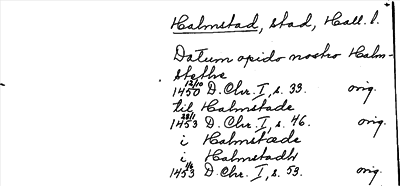 Halmstad, stad, Hall. l.
Datum opido nostro Halm-
stethe
12/10 1450 D. Chr. I, s. 33. orig.
til Halmstade
28/1 1453 D. Chr. I, s. 46. orig.
i Halmstæde
i Halmstadh
1/6 1453 D. Chr. I, s. 53. orig.